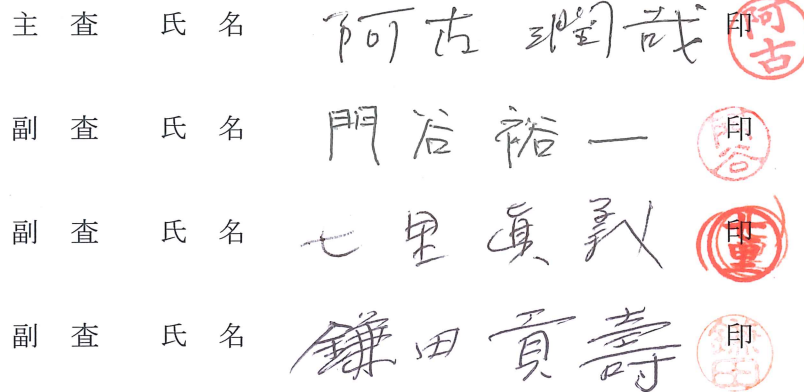 主査 氏名 阿古潤哉 印 阿古
副査 氏名 門谷裕一 印 門谷
副査 氏名 七里眞義 印 七里
副査 氏名 鎌田貢壽 印 鎌田